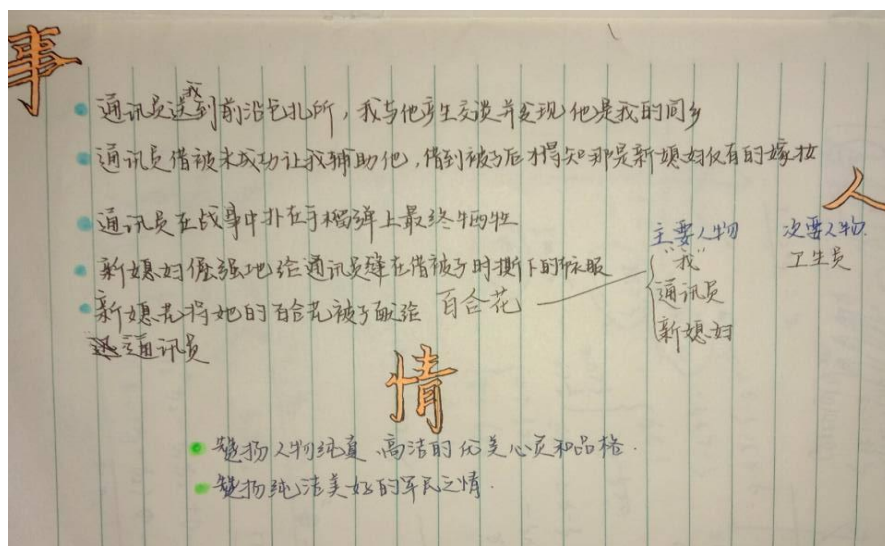 事
通讯员送我到前沿包扎所，我与他产生交谈并发现他是我的同乡
通讯员借被未成功让我辅助他，借到被子后才得知那是新媳妇仅有的嫁妆
通讯员在战事中扑在手榴弹上最终牺牲
新媳妇倔强地给通讯员缝在借被子时撕下的衣服
新媳妇将她的百合花被子献给
通讯员
百合花
人
主要人物
"我"
通讯员
新媳妇
次要人物
卫生员
情
赞扬人物纯真、高洁的优美心灵和品格.
赞扬纯洁美好的军民之情.